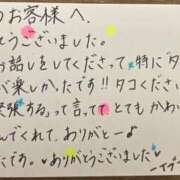 のお客様へ.
とうございました。
お話しをしてくださって、特にタ
が楽しかたです!!タコくださ
緊張する」って言ってて とてもかわい
んでくれて、ありがとー♪
たです。ありがとうございました